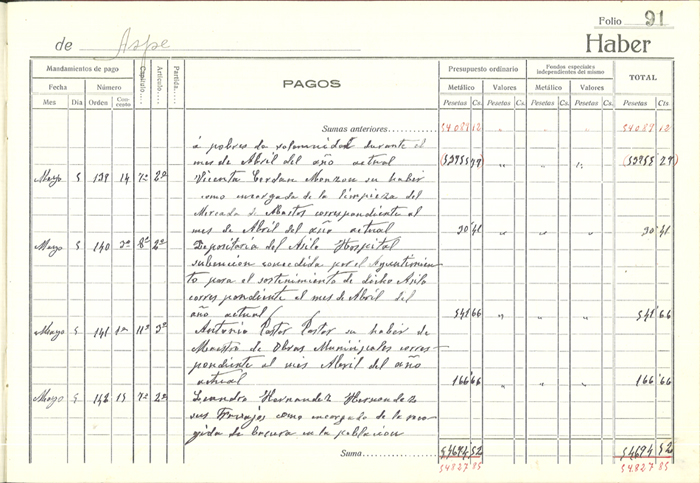 Folio 91
de Aspe
Haber
Mandamientos de pago
Fecha
Número
Mes
Dia
Orden
Con-cepto
Capítulo
Artículo
Partida
PAGOS
Presupuesto ordinario
Metálico
Valores
Pesetas Cs. Pesetas Cs.
Fondos especiales
independientes del mismo
Metálico
Valores
Pesetas Cs. Pesetas Cs.
TOTAL
Pesetas Cts
Sumas anteriores 54.087 12 54.087 12
á pobres de solemnidad durante el
mes de Abril del año actual (53955 79) (53955 29)
Mayo 5 139 14 7º 2º Vicenta Cerdan Monzon su haber
como encargada de la limpieza del
Mercado de Abastos correspondiente al
mes de Abril del año actual 30 41 30 41
Mayo 5 140 3º 8º 2º Depositaria del Asilo Hospital
subencion concedida por el Ayuntamien
to para el sostenimiento de dicho Asilo
correspondiente al mes de Abril del
año actual 541 66 541 66
Mayo 5 141 1º 11º 3º Antonio Pastor Pastor su haber de
Maestro de Obras Municipales corres
pondiente al mes Abril del año
actual 166 66 166 66
Mayo 5 142 15 7º 2º Leandro Hernandez Hernandez
sus Travajos como encargado de la reco
gida de basura en la poblacion
Suma 54694 52 54694 52
54827 85 54.827 85